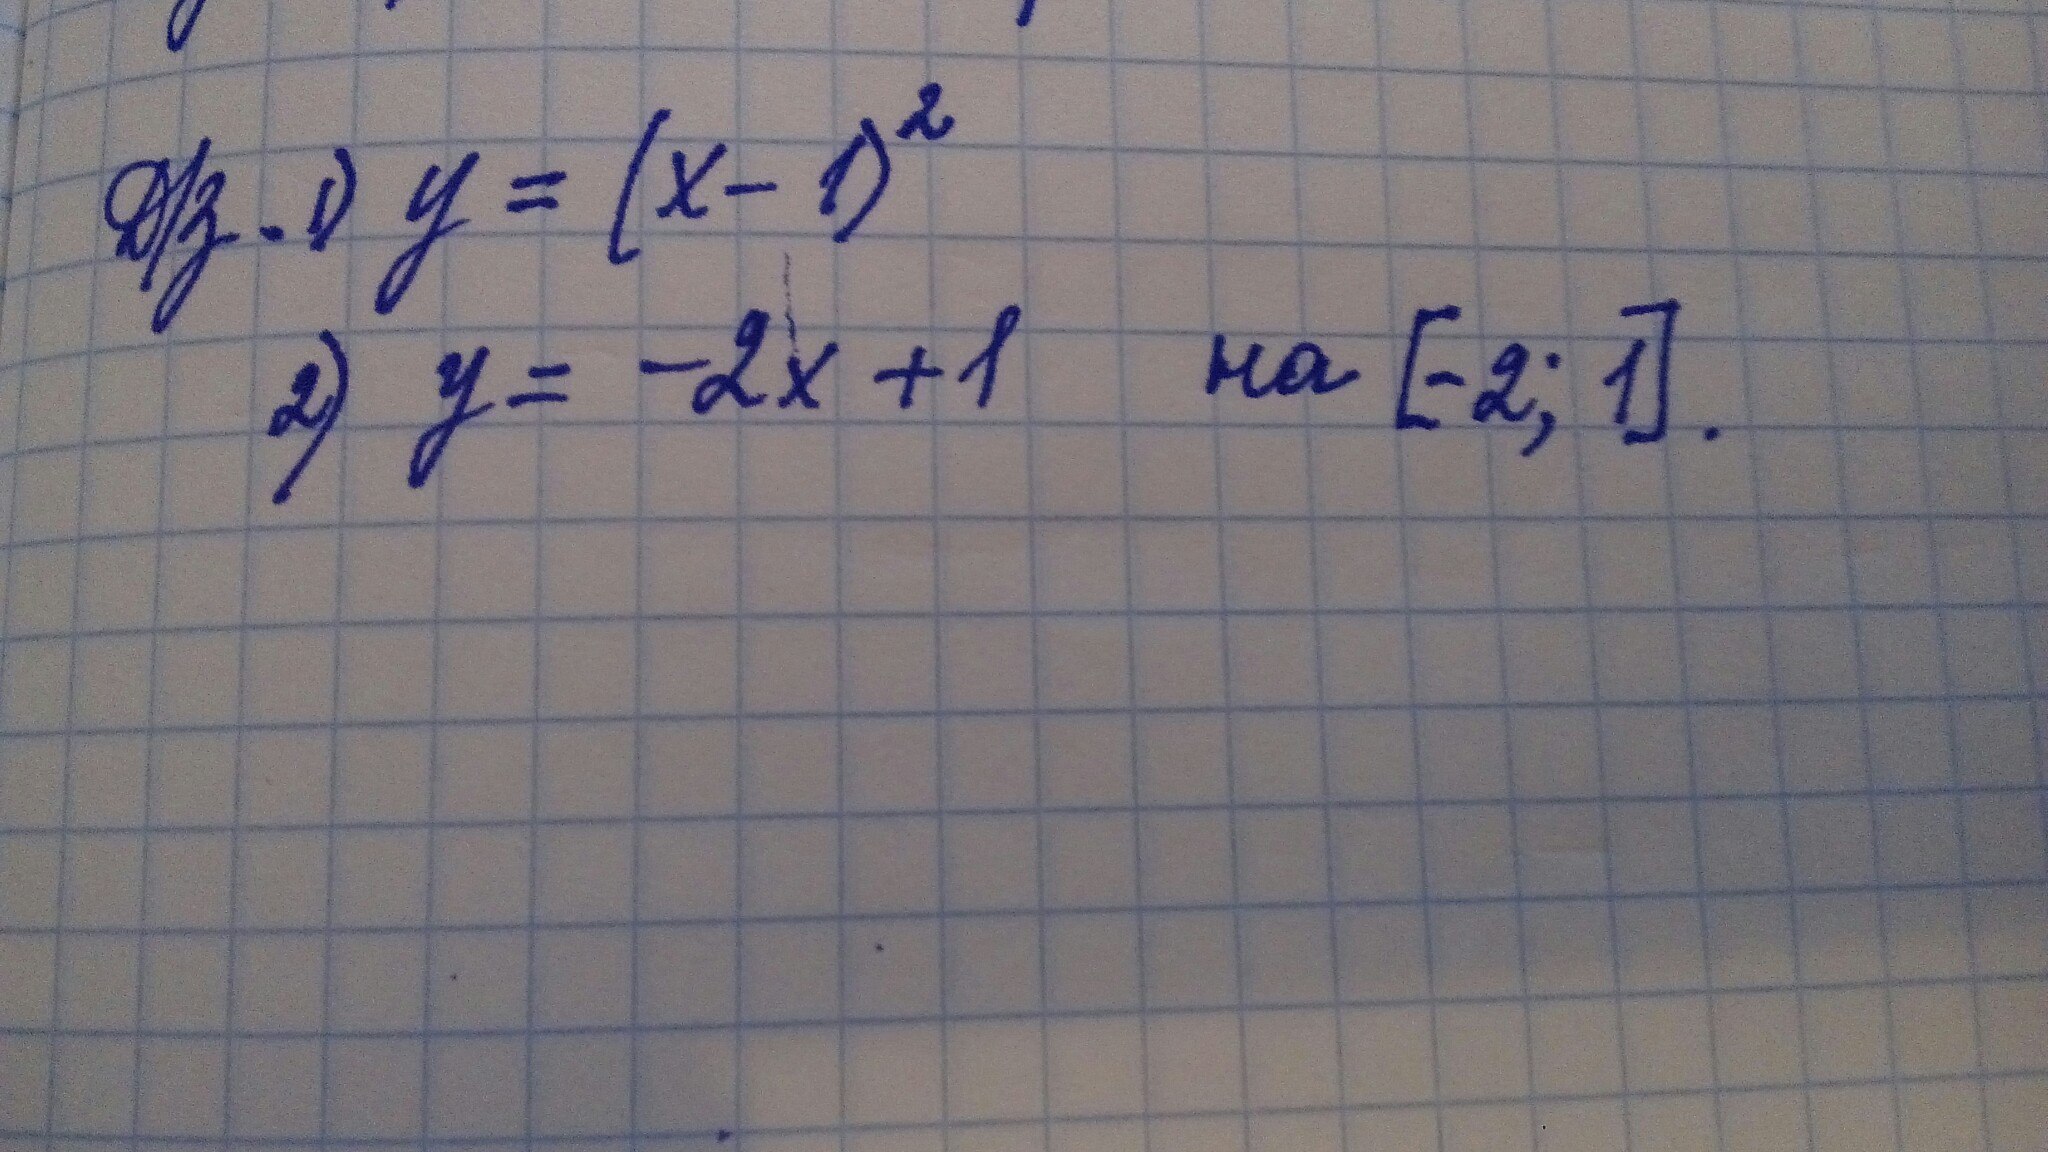 Д/з. 1) y = (x - 1)²
2) y = -2x + 1 на [-2; 1].